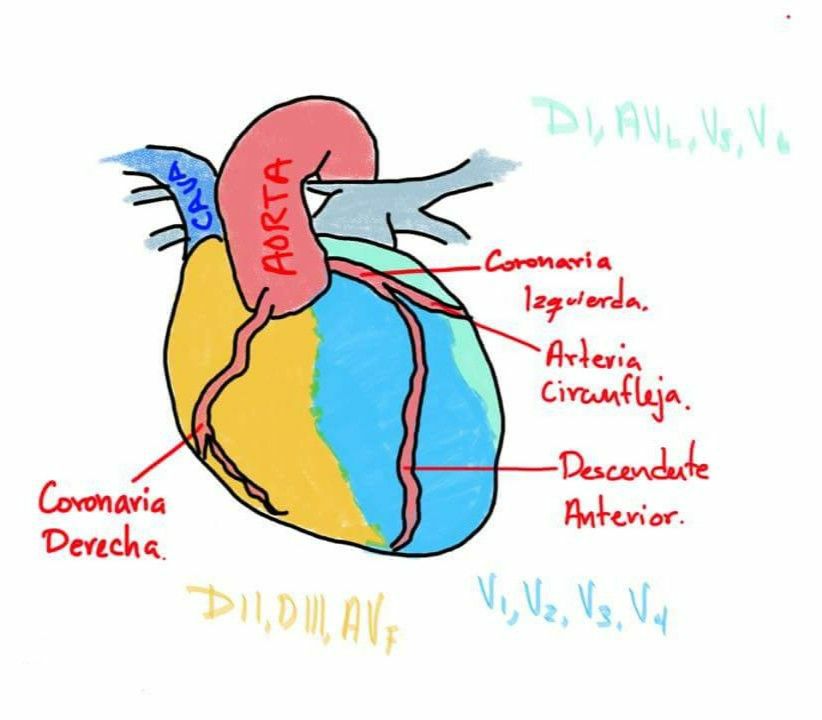 DI, AVL, V5, V6
CAVA
AORTA
Coronaria
Izquierda.
Arteria
Circunfleja.
Descendente
Anterior.
Coronaria
Derecha.
DII, DIII, AVF
V1, V2, V3, V4